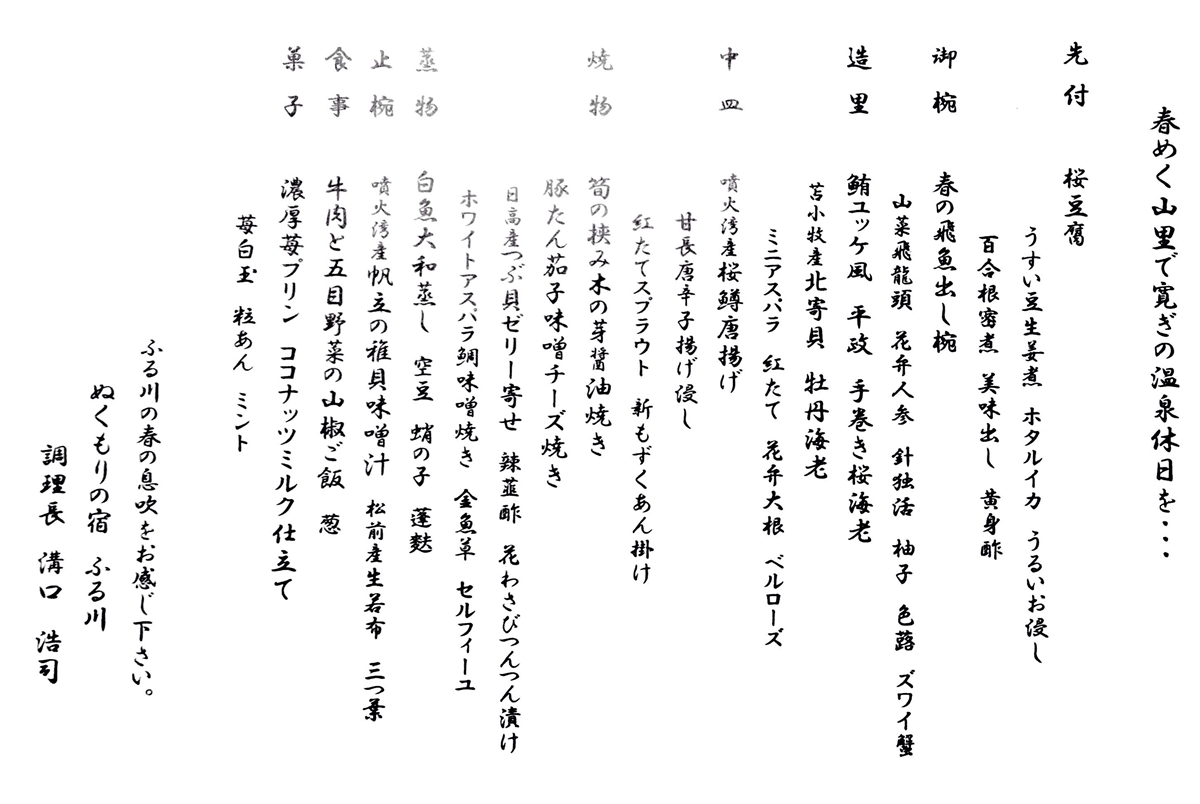 春めく山里で寛ぎの温泉休日を・・・
先付　桜豆腐
うすい豆生姜煮　ホタルイカ　うるいお浸し
百合根密煮　美味出し　黄身酢
御椀　春の飛魚出し椀
山菜飛龍頭　花弁人参　針独活　柚子　色蕗　ズワイ蟹
造里　鮪ユッケ風　平政　手巻き桜海老
苫小牧産北寄貝　牡丹海老
ミニアスパラ　紅たて　花弁大根　ベルローズ
中皿　噴火湾産桜鱒唐揚げ
甘長唐辛子揚げ浸し
紅たてスプラウト　新もずくあん掛け
焼物　筍の挟み木の芽醤油焼き
豚たん茄子味噌チーズ焼き
日高産つぶ貝ゼリー寄せ　辣韮酢　花わさびつんつん漬け
ホワイトアスパラ鯛味噌焼き　金魚草　セルフィーユ
蒸物　白魚大和蒸し　空豆　蛸の子　蓬麩
止椀　噴火湾産帆立の稚貝味噌汁　松前産生若布　三つ葉
食事　牛肉と五目野菜の山椒ご飯　葱
菓子　濃厚苺プリン　ココナッツミルク仕立て
苺白玉　粒あん　ミント
ふる川の春の息吹をお感じ下さい。
ぬくもりの宿　ふる川
調理長　溝口　浩司